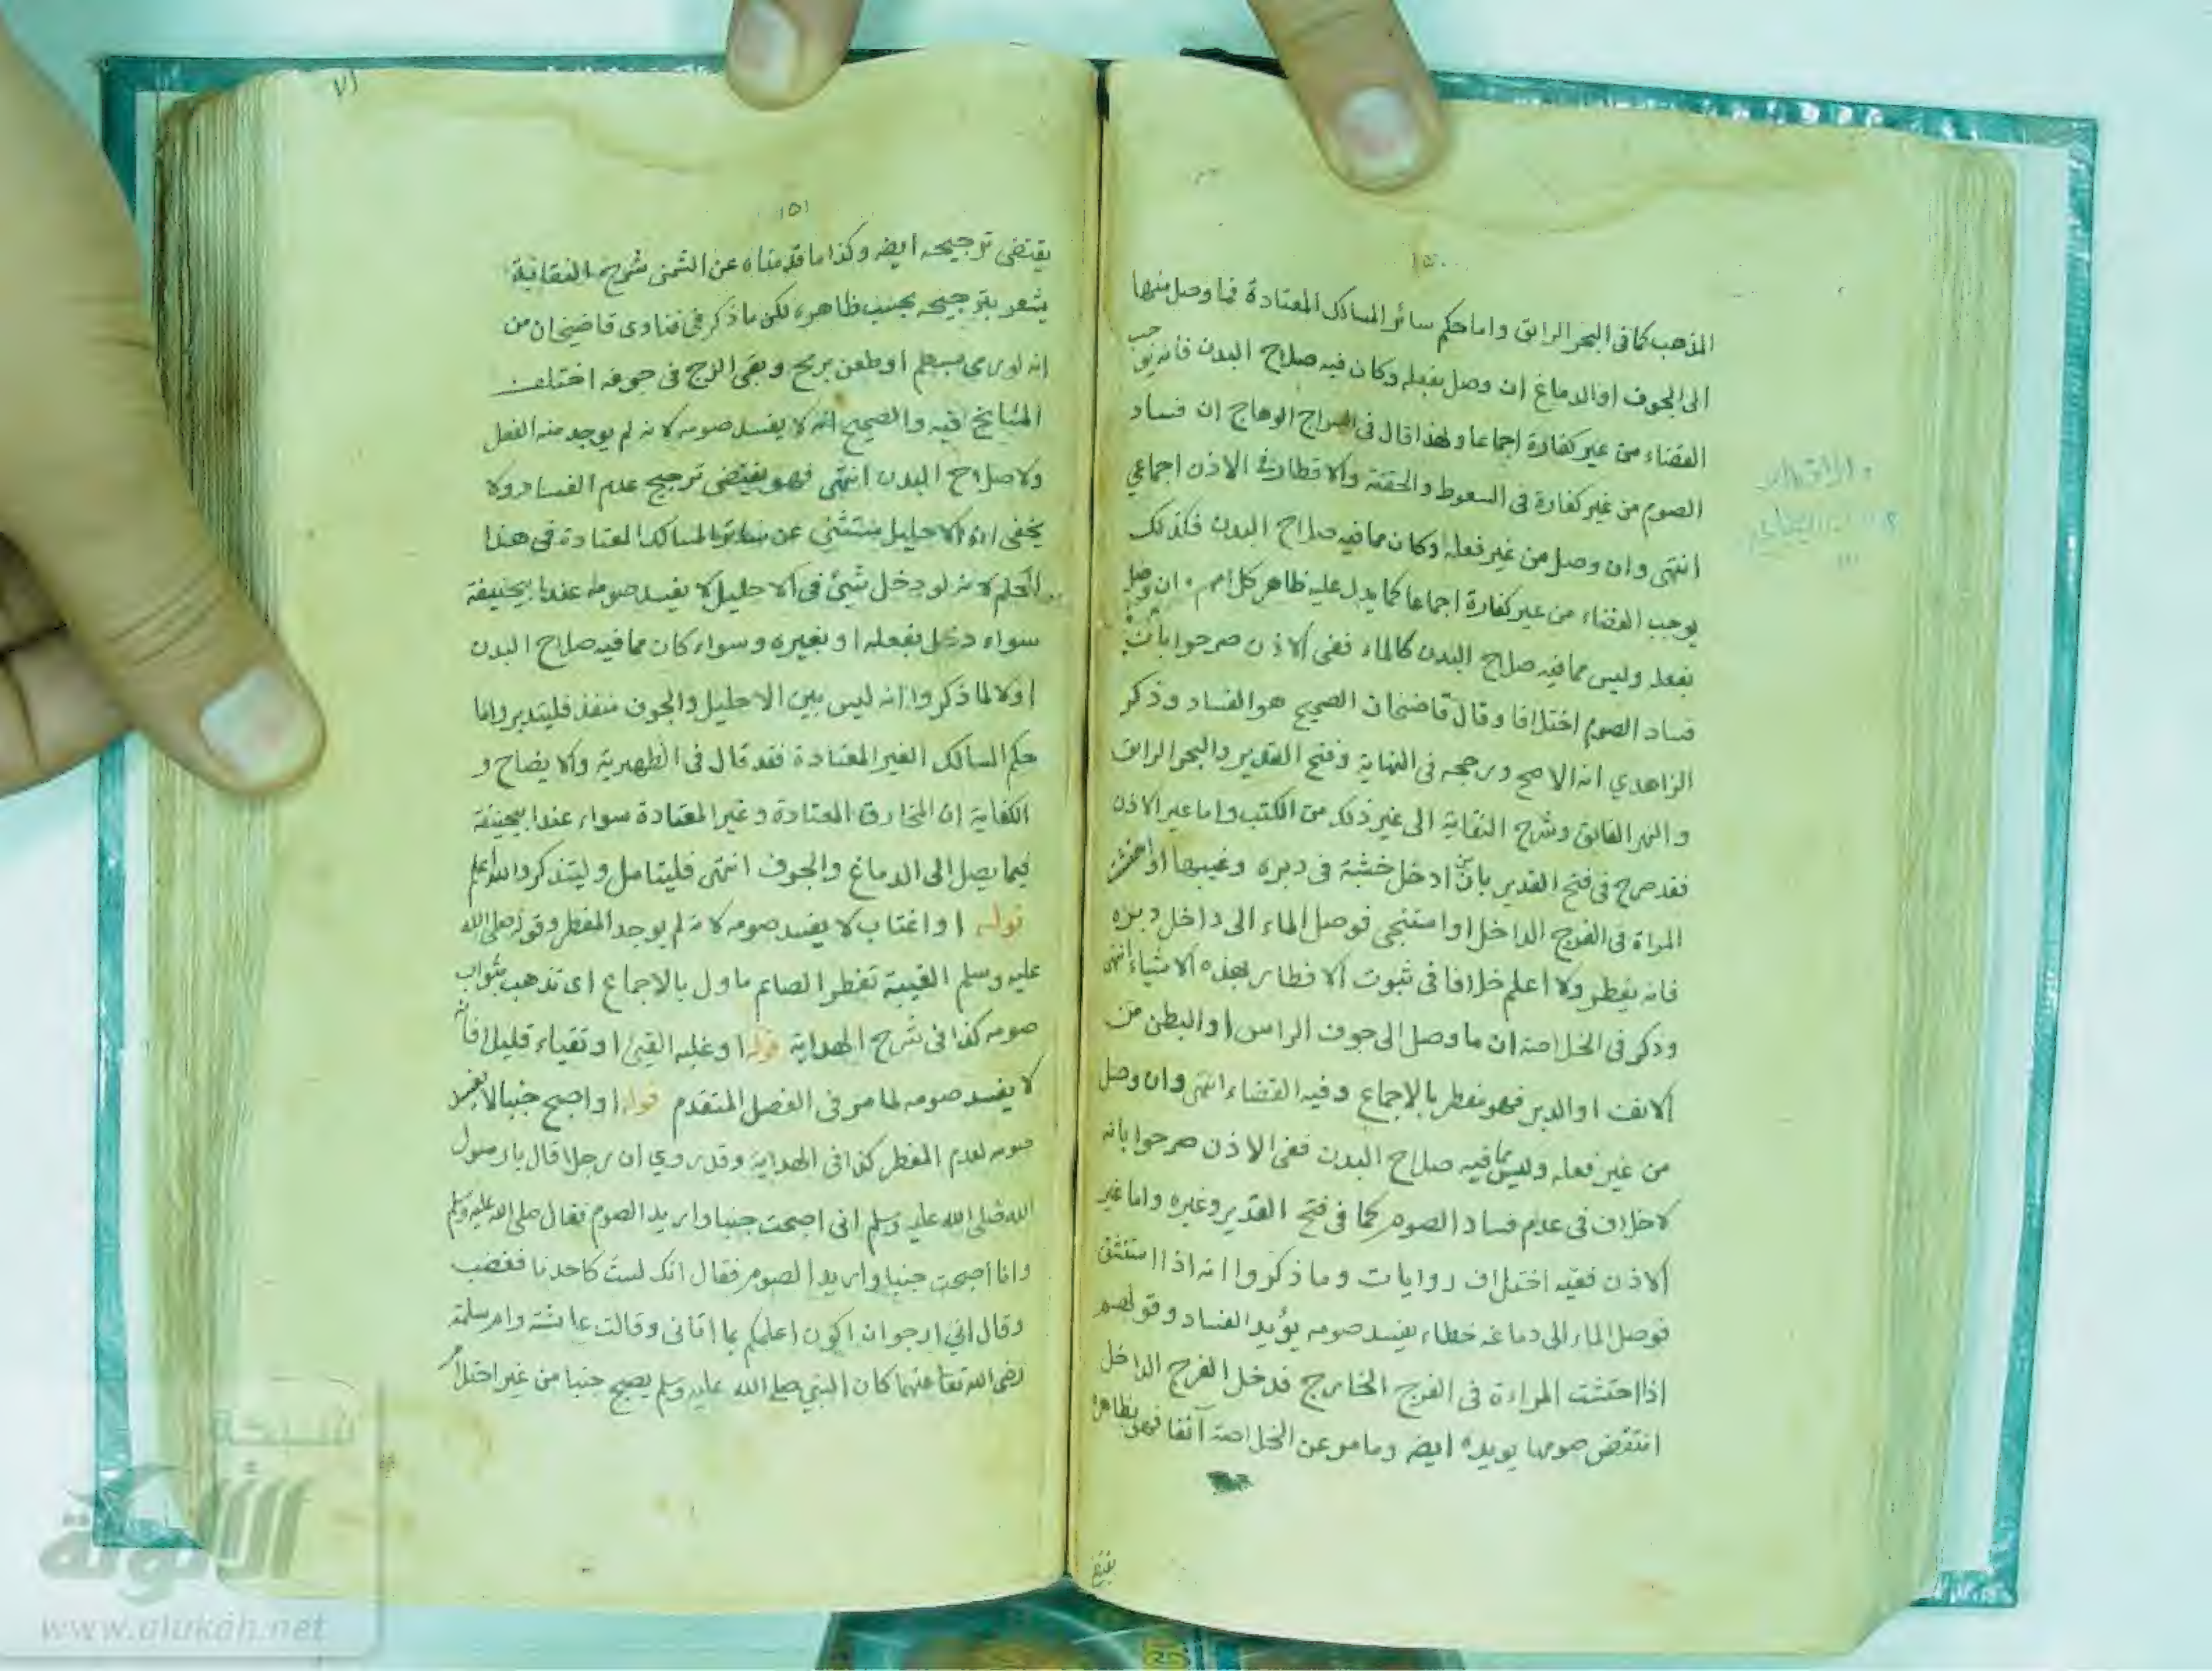 ١٥٠
المذهب كما فى البحر الرايق واما حكم سائر المسالك المعتادة فما وصل منها
الى الجوف او الدماغ ان وصل بفعله وكان فيه صلاح البدن فانه يوجب
القضاء من غير كفارة اجماعا ولهذا قال فى السراج الوهاج ان فساد
الصوم من غير كفارة فى السعوط والحقنة والاقطار فى الاذن اجماعي
انتهى وان وصل من غير فعله وكان مما فيه صلاح البدن فكذلك
يوجب القضاء من غير كفارة اجماعا كما يدل عليه ظاهر كلامهم وان وصل
بفعله وليس مما فيه صلاح البدن كالماء ففى الاذن صرحوا بان
فساد الصوم اختلافا وقال قاضيخان الصحيح هو الفساد وذكر
الزاهدي انه الاصح ورجحه فى النهاية وفتح القدير والبحر الرايق
والنهر الفائق وشرح النقاية الى غير ذلك من الكتب واما غير الاذن
فقد صرح فى فتح القدير بان من ادخل خشبة فى دبره وغيبها او احتشت
المراة فى الفرج الداخل او استنجى فوصل الماء الى داخل دبره
فانه يفطر ولا اعلم خلافا فى ثبوت الافطار بهذه الاشياء انتهى
وذكر فى الخلاصة ان ما وصل الى جوف الراس او البطن من
الانف او الدبر فهو مفطر بالاجماع وفيه القضاء انتهى وان وصل
من غير فعله وليس مما فيه صلاح البدن ففى الاذن صرحوا بانه
لا خلاف فى عدم فساد الصوم كما فى فتح القدير وغيره واما غير
الاذن ففيه اختلاف روايات وما ذكروا انه اذا استنشق
فوصل الماء الى دماغه خطاء يفسد صومه يؤيد الفساد وقولهم
اذا احتشت المراءة فى الفرج الخارج فدخل الفرج الداخل
انتقض صومها يويده ايضه وما مر عن الخلاصة آنفا فهو بظاهره
يقتضى
٧١
١٥١
يقتضى ترجيحه ايضه وكذا ما قدمناه عن الشمنى شرح النقاية
يشعر بترجيحه بحسب ظاهره لكن ما ذكر فى فتاوى قاضيخان من
انه لو رمى بسهم او طعن برمح وبقى الزج فى جوفه اختلف
المشايخ فيه والصحيح انه لا يفسد صومه لانه لم يوجد منه الفعل
ولا صلاح البدن انتهى فهو يقتضى ترجيح عدم الفساد ولا
يخفى ان الاحليل مستثنى عن سائر المسالك المعتادة فى هذا
الحكم لانه لو دخل شيئ فى الاحليل لا يفسد صومه عند ابيحنيفة
سواء دخل بفعله او بغيره وسواء كان مما فيه صلاح البدن
او لا لما ذكروا انه ليس بين الاحليل والجوف منفذ فليتدبر واما
حكم المسالك الغير المعتادة فقد قال فى الظهيرية والايضاح و
الكفاية ان المخارق المعتادة وغير المعتادة سواء عند ابيحنيفة
فيما يصل الى الدماغ والجوف انتهى فليتامل وليتذكر والله اعلم
قوله او اغتاب لا يفسد صومه لانه لم يوجد المفطر وقوله صلى الله
عليه وسلم الغيبة تفطر الصايم ماول بالاجماع اى تذهب بثواب
صومه كذا فى شرح الهداية قوله او غلبه القيئ او تقياء قليلا فانه
لا يفسد صومه لما مر فى الفصل المتقدم قوله او اصبح جنبا لا يفسد
صومه لعدم المفطر كذا فى الهداية وقد روي ان رجلا قال يا رسول
الله صلى الله عليه وسلم انى اصبحت جنبا واريد الصوم فقال صلى الله عليه وسلم
وانا اصبحت جنبا واريد الصوم فقال انك لست كاحدنا فغضب
وقال اني ارجو ان اكون اعلمكم بما اتقى وقالت عائشة وام سلمة
رضى الله تعا عنهما كان النبي صلى الله عليه وسلم يصبح جنبا من غير احتلام
شبكة
الألوكة
www.alukah.net